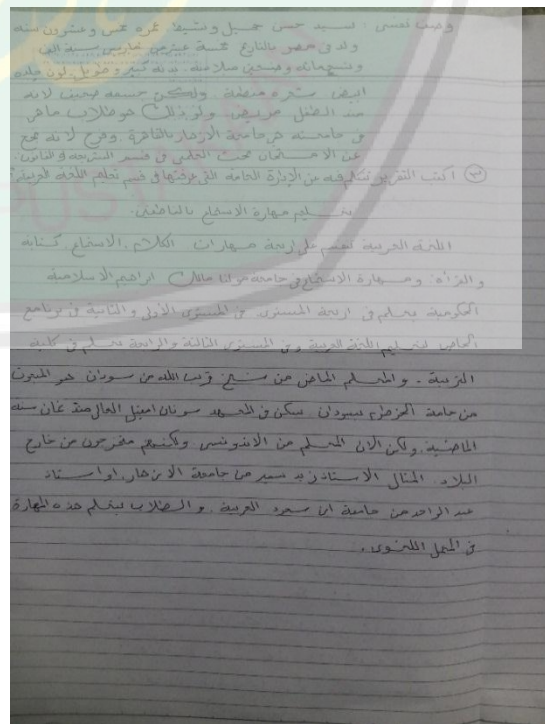 وصف نفسى : لسيد حسن جميل ونشيط عمره خمس وعشرون سنة
ولد فى مصر بالتاريخ خمسة عشر من مارس سنة الف
وتسعمائة وتسعين ميلادية. بدنه كبير وطويل. لون جلده
ابيض شعره منظمة. ولكن جسمه ضعيف لانه
منذ الطفل مريض ولو ذلك هو طلاب ماهر
فى جامعته هى جامعة الازهار بالقاهرة. وفرح لانه نجح
عن الامتحان بحث العلمى فى قسم الشريعة والقانون.
اكتب التقرير تتكلم فيه عن الإدارة العامة التى عرفتها فى قسم تعليم اللغة العربية
بتعليم مهارة الاستماع بالناطقين.
اللغة العربية تقسم على اربعة مهارات الكلام، الاستماع، كتابة
و القرأة. ومهارة الاستماع فى جامعة مولانا مالك ابراهيم الاسلامية
الحكومية يتعلم فى اربعة المستوى. فى المستوى الأولى و الثانية فى برنامج
الخاص لتعليم اللغة العربية وفى المستوى الثالثة والرابعة يتعلم فى كلية
التربية. والمعلم الماضى من شيخ قريب الله من سودان هو المبعوث
من جامعة الخرطوم بسودان سكن فى المعهد سونان امبيل العالى منذ ثمان سنة
الماضية ولكن الان المعلم من الاندونسى ولكنهم متخرجون من خارج
البلاد. المثال الاستاذ زيد سمير من جامعة الازهار، او استاذ
عبد الواحد من جامعة ابن سعود العربية. و الطلاب يتعلم هذه المهارة
فى المعمل اللغوى.